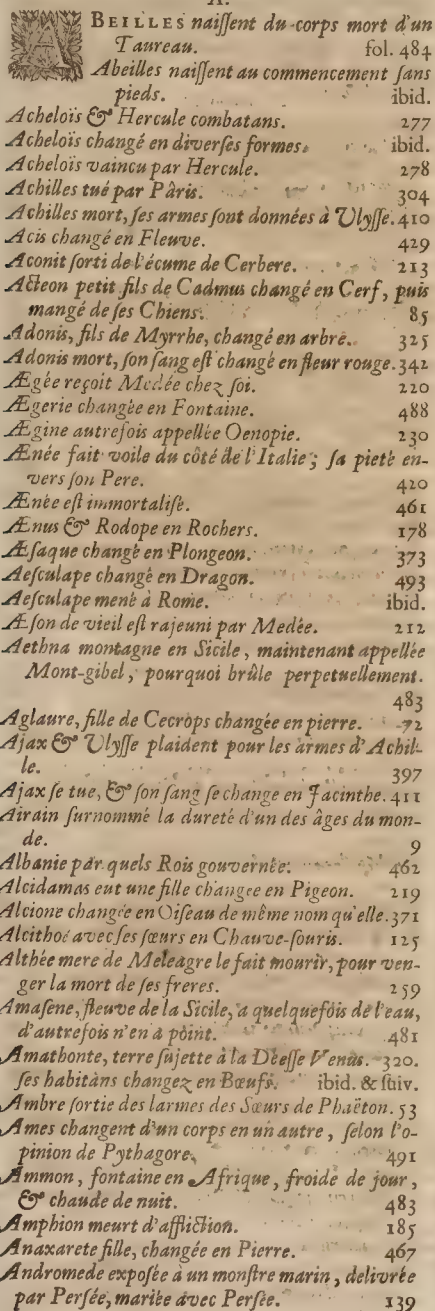 A.
ABEILLES naiſſent du corps mort d'un
Taureau. fol. 484
Abeilles naiſſent au commencement ſans
pieds. ibid.
Acheloïs & Hercule combatans. 277
Acheloïs changé en diverſes formes. ibid.
Acheloïs vaincu par Hercule. 278
Achilles tué par Pâris. 304
Achilles mort, ſes armes ſont données à Ulyſſe. 410
Acis changé en Fleuve. 429
Aconit ſorti de l'écume de Cerbere. 213
Acteon petit fils de Cadmus changé en Cerf, puis
mangé de ſes Chiens. 85
Adonis, fils de Myrrhe, changé en arbre. 325
Adonis mort, ſon ſang eſt changé en fleur rouge. 342
Ægée reçoit Medée chez ſoi. 220
Ægerie changée en Fontaine. 488
Ægine autrefois appellée Oenopie. 230
Ænée fait voile du côté de l'Italie; ſa pieté en-
vers ſon Pere. 420
Ænée eſt immortaliſé. 461
Ænus & Rodope en Rochers. 178
Æſaque changé en Plongeon. 373
Aeſculape changé en Dragon. 493
Aeſculape mené à Rome. ibid.
Æſon de vieil eſt rajeuni par Medée. 212
Aethna montagne en Sicile, maintenant appellée
Mont-gibel, pourquoi brûle perpetuellement.
483
Aglaure, fille de Cecrops changée en pierre. 72
Ajax & Ulyſſe plaident pour les armes d'Achil-
le. 397
Ajax ſe tue, & ſon ſang ſe change en Jacinthe. 411
Airain ſurnommé la dureté d'un des âges du mon-
de. 9
Albanie par quels Rois gouvernée. 462
Alcidamas eut une fille changée en Pigeon. 219
Alcione changée en Oiſeau de même nom qu'elle. 371
Alcithoé avec ſes ſœurs en Chauve-ſouris. 125
Althée mere de Meleagre le fait mourir, pour ven-
ger la mort de ſes freres. 259
Amaſene, fleuve de la Sicile, a quelquefois de l'eau,
d'autrefois n'en a point. 481
Amathonte, terre ſujette à la Déeſſe Venus. 320.
ſes habitans changez en Bœufs. ibid. & ſuiv.
Ambre ſortie des larmes des Sœurs de Phaëton. 53
Ames changent d'un corps en un autre, ſelon l'o-
pinion de Pythagore. 491
Ammon, fontaine en Afrique, froide de jour,
& chaude de nuit. 483
Amphion meurt d'affliction. 185
Anaxarete fille, changée en Pierre. 467
Andromede expoſée à un monſtre marin, delivrée
par Perſée, mariée avec Perſée. 139